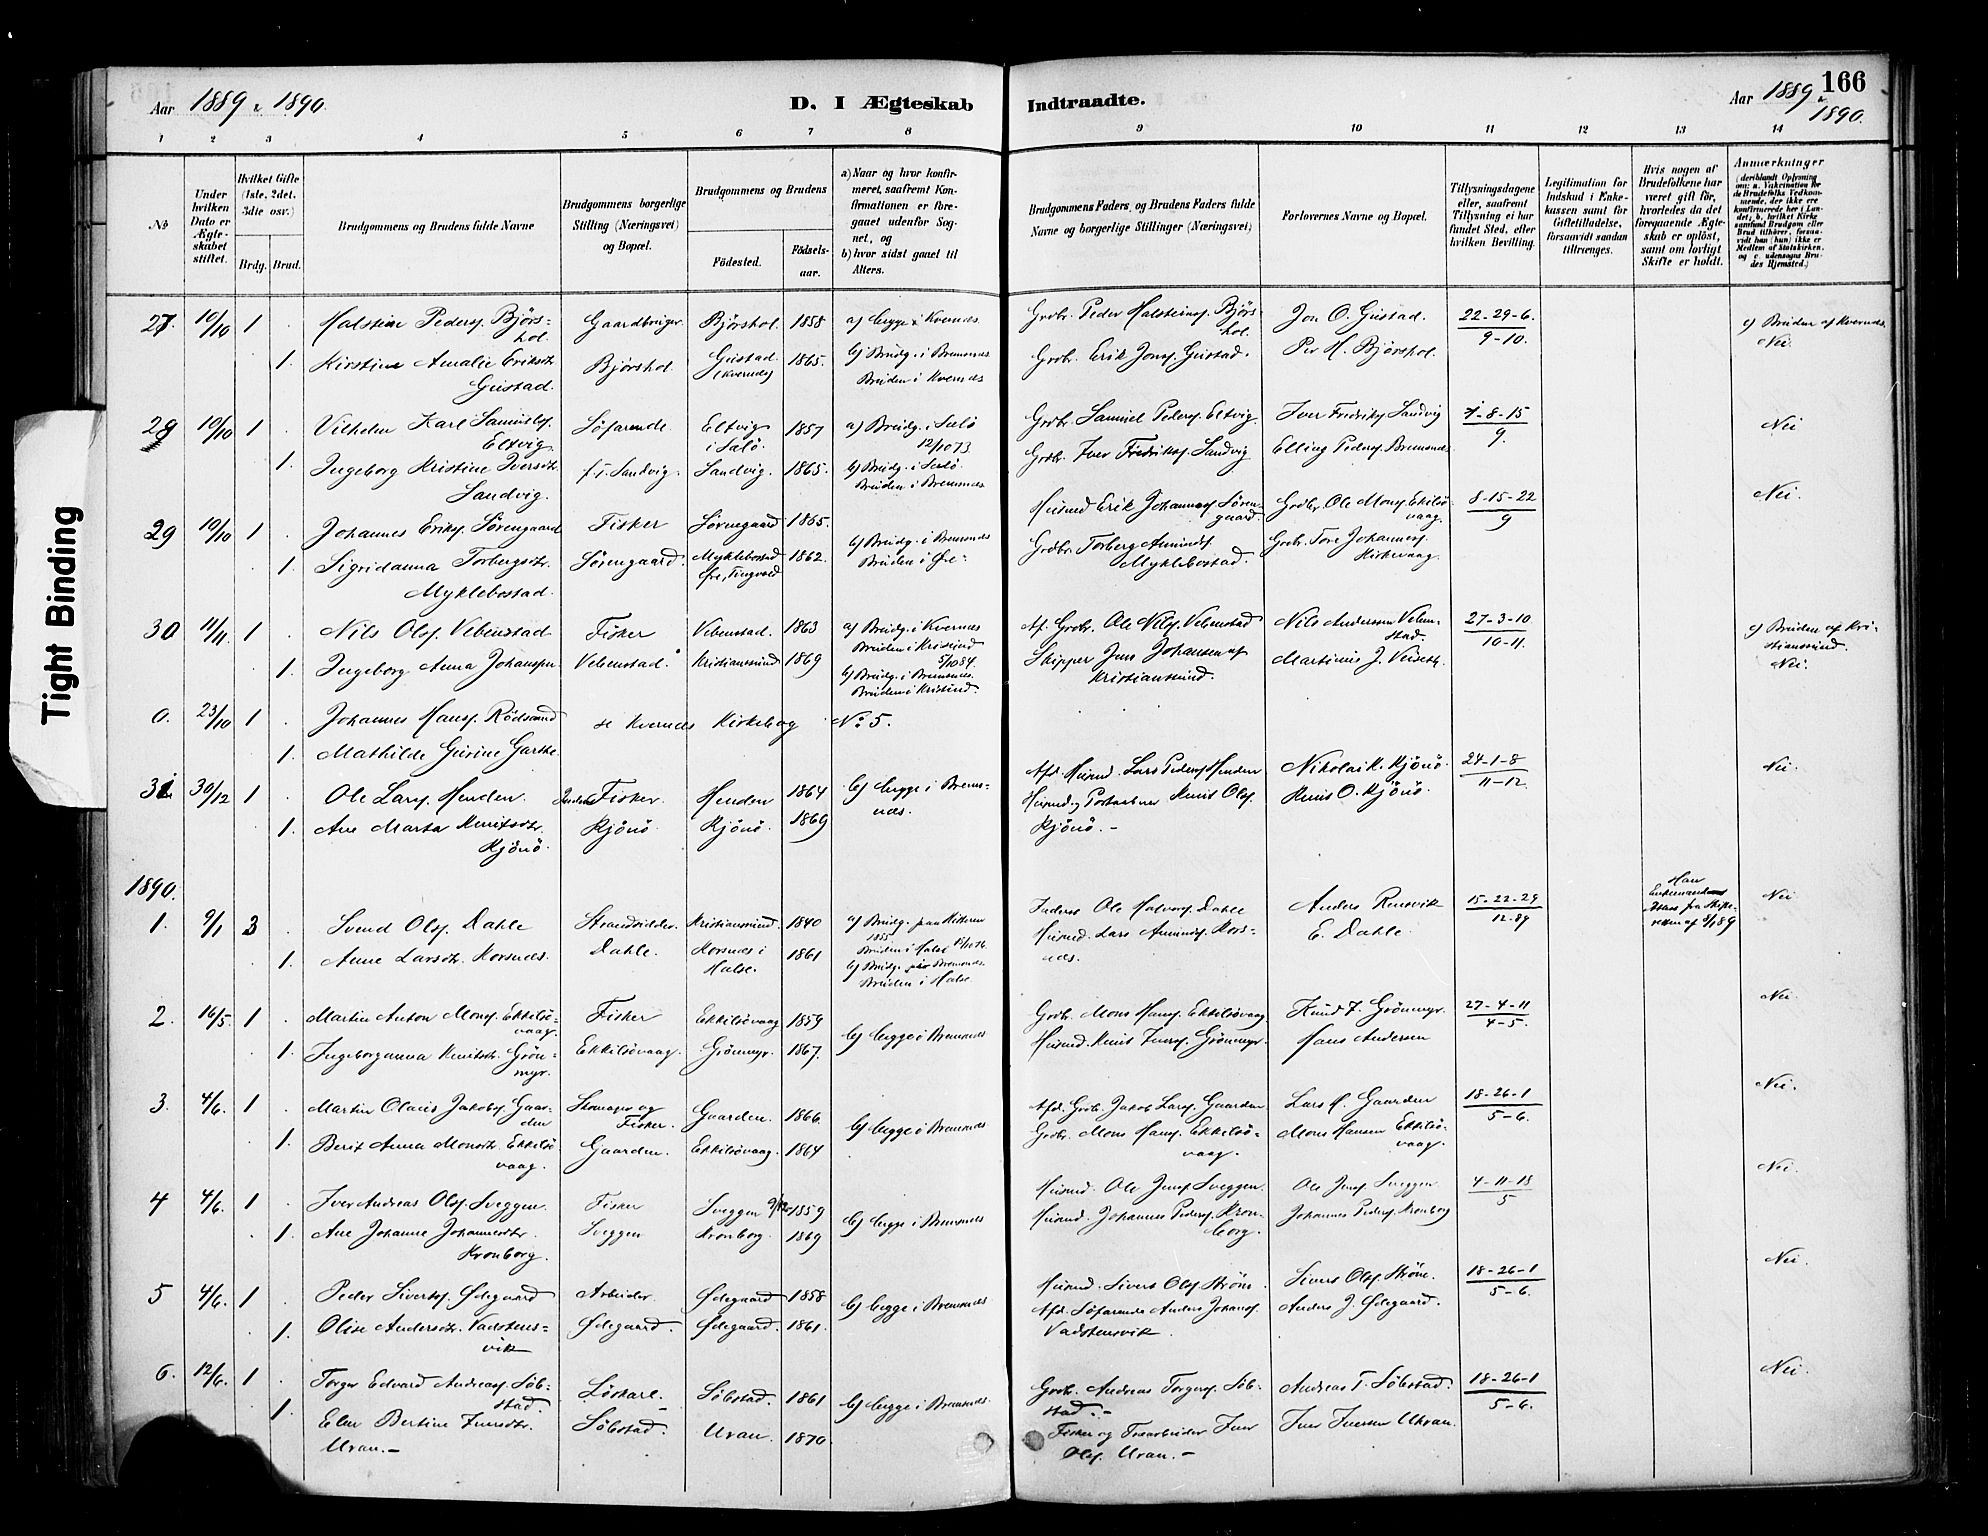 166
Aar 1889 & 1890.
D. I Ægteskab Indtraadte.
Aar 1889 & 1890.
1 2 3 4 5 6 7 8 9 10 11 12 13 14
No
Under hvilken Dato er Ægteskabet stiftet.
Hvilket Gifte (1ste, 2det, 3die osv.)
Brdg. Brud.
Brudgommens og Brudens fulde Navne
Brudgommens borgerlige Stilling (Næringsvei) og Bopæl.
Brudgommens og Brudens
Fødested.
Fødselsaar.
a) Naar og hvor konfirmeret, saafremt Konfirmationen er foregaaet udenfor Sognet, og
b) hvor sidst gaaet til Alters.
Brudgommens Faders og Brudens Faders fulde Navne og borgerlige Stillinger (Næringsvei)
Forlovernes Navne og Bopæl.
Tillysningsdagene eller, saafremt Tillysning ei har fundet Sted, efter hvilken Bevilling.
Legitimation for Indskud i Enkekassen samt for Giftetilladelse, forsaavidt saadan tiltrænges.
Hvis nogen af Brudefolkene har været gift før, hvorledes da det foregaaende Ægteskab er opløst, samt om lovligt Skifte er holdt.
Anmerkninger
(deriblandt Oplysning om: a. Vakcination for de Brudefolks Vedkommende, der ikke ere konfirmerede her i Landet; b. hvilket Kirkesamfund Brudgom eller Brud tilhører, forsaavidt han (hun) ikke er Medlem af Statskirken, og c. udensogns Brudes Hjemsted.)
27. 10/10 1 Halstein Peders. Bjørshol. Gaardbruger Bjørshol. 1858 a) begge i Kvernes. Grdbr. Peder Halsteins. Bjørshol. Jon O. Gustad. 22-29-6. c) Bruden af Kvernes.
1. Kirstine Amalie Eriksdtr. Gustad. Bjørshol. Gustad i Kvernes 1865. b) Brudg. i Bremsnes Bruden i Kvernes Grdbr. Erik Jons. Gustad. Per H. Bjørshol. 9-10. Nei.
28 10/10 1 Vilhelm Karl Samuels. Eltvig Søfarende. Eltvig i 1857 a) Brudg. i 12/10 73. Grdbr. Samuel Peders. Eltvig. Iver Fredriks. Sandvig 1-8-15 Nei
1. Ingeborg Kristine Iversdtr. Sandvig. f. T. Sandvig. Sandvig. 1865. b) Brudg. i Bruden i Bremsnes Grdbr. Iver Fredriks. Sandvig Elling Peders. Bremsnes 9.
29 10/10 1 Johannes Eriks. Sørengaard Fisker Sørengaard 1865. b) Brudg. i Bremsnes Husmd. Erik Johannes. Sørengaard. Grdbr. Ole Mons. Ekkilsøvaag. 8-15-22 Nei.
1. Sigridanna Torbergsdtr. Myklebostad. Sørengaard. Myklebostad Øre, Tingvold 1862. Bruden i Øre. Grdbr. Torberg Amunds. Myklebostad. Grdbr. Tore Johannes. Kirkevaag. 9
30 11/11 1 Nils Ols. Vebenstad Fisker Vebenstad. 1863 a) Brudg. i Kvernes Bruden i Kristsund 5/10 84. Af. Grdbr. Ole Nils. Vebenstad Nils Andersen Vebenstad. 27-3-10 c) Bruden af Kristiansund.
1. Ingeborg Anna Johansen Vebenstad. Kristiansund 1869 b) Brudg. i Bremsnes. Bruden i Kristsund. Skipper Jens Johansen af Kristiansund. Martinus J. Veiseth. 10-11. Nei.
0. 23/10 1 Johannes Hans. Rødsand se Kvernes Kirkebog No. 5.
1. Mathilde Gurine Garthe.
31 30/12 1 Ole Lars. Henden. Fisker. Henden 1864 b) begge i Bremsnes. Afd. Husmd. Lars Peders. Henden Nikolai K. Kjønø. 24-1-8 Nei.
1. Ane Marta Knutsdtr. Kjønø. Kjønø Kjønø. 1869 Husmd. og Knut Ols. Kjønø. Knut O. Kjønø. 11-12.
1890.
1. 9/1 3 Svend Ols. Dahle Strandsidder. Kristiansund. 1840 a) Brudg. paa Hitteren 1855 Ole Halvors. Dahle Anders Rensvik 15-22-29 Han Enkemand Attest fra Skifteretten af 3/1 89 Nei
1. Anne Larsdtr. Korsnes. Dahle. Korsnes i Halse. 1861 Bruden i Halse b) Brudg. i Bremsnes. Bruden i Halse Husmd. Lars Amunds. Korsnes. E. Dahle. 12-89
2. 16/5 1 Martin Anton Mons. Ekkilsøvaag. Fisker Ekkilsøvaag 1859 b) begge i Bremsnes Grdbr. Mons Hans. Ekkilsøvaag. Knud I. Grønmyr. 27-4-11 Nei.
1. Ingeborganna Knutsdtr. Grønmyr. Ekkilsøvaag. Grønmyr. 1867. Husmd. Knut Ivers. Grønmyr. Hans Andersen 4-5.
3. 4/6. 1 Martin Olaus Jakobs. Gaarden Skomager og Fisker. Gaarden. 1866. b) begge i Bremsnes Afd. Grdbr. Jakob Lars. Gaarden Lars M. Gaarden 18-26-1 Nei.
1. Berit Anna Monsdtr. Ekkilsøvaag. Gaarden. Ekkilsøvaag. 1864 Grdbr. Mons Hans. Ekkilsøvaag. Mons Hansen Ekkilsøvaag. 5-6.
4 4/6. 1 Iver Andreas Ols. Sveggen. Fisker Sveggen 1859 b) begge i Bremsnes Husmd. Ole Jens. Sveggen. Ole Jens. Sveggen 4-11-18 Nei.
1. Ane Johanne Johannesdtr. Kronborg. Sveggen Kronborg. 1869 Husmd. Johannes Peders. Kronborg. Johannes Peders. Kronborg 5
5 4/6. 1 Peder Siverts. Ødegaard Arbeider. Ødegaard 1858 b) begge i Bremsnes Husmd. Sivert Ols. Strøm. Sivert Ols. Strøm. 18-26-1 Nei.
1. Olise Andersdtr. Vadstensvik Ødegaard. Ødegaard. 1861. Afd. Søfarende Anders Johans. Vadstensvik. Anders J. Ødegaard. 5-6.
6. 12/6. 1 Torger Edvard Andreas. Søbstad. Løskarl. Søbstad. 1861 b) begge i Bremsnes. Grdbr. Andreas Torgers. Søbstad. Andreas T. Søbstad. 18-26-1 Nei.
1. Elen Bertine Iversdtr. Uran. Søbstad. Uran. 1870. Fisker og Træarbeider Iver Ols. Uran. Iver Iversen Uran. 5-6.
Tight Binding